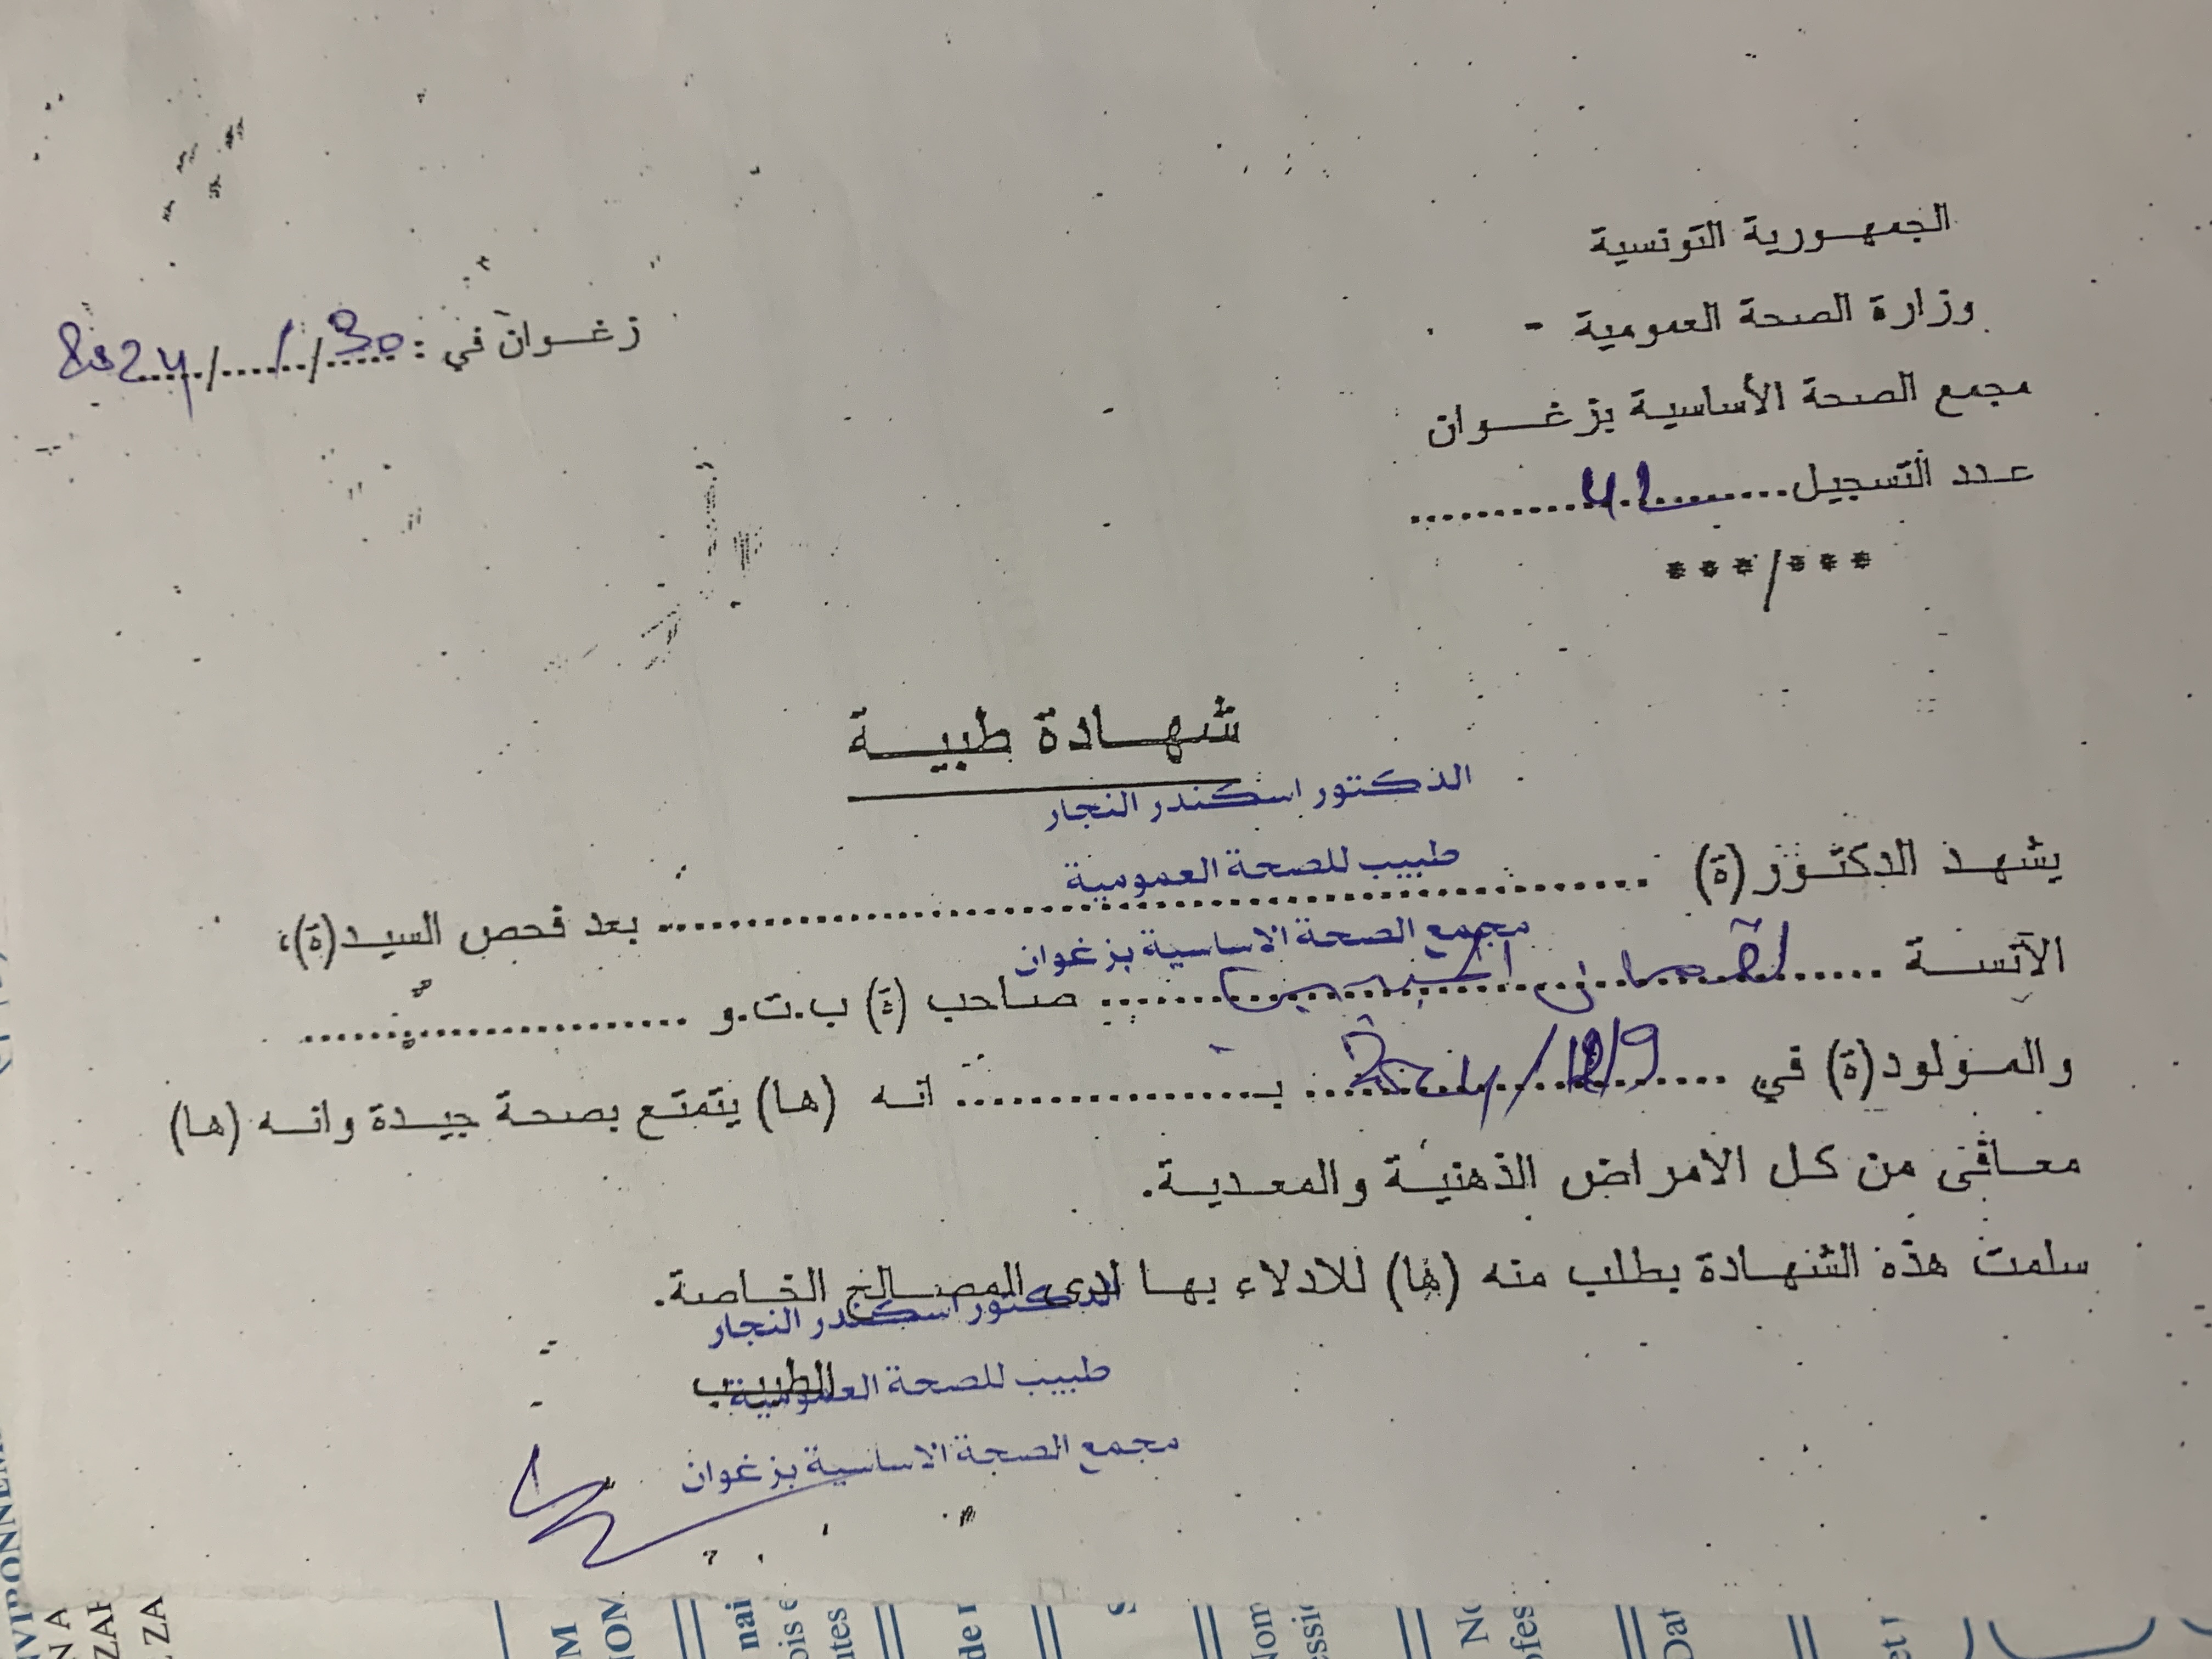 الجمهورية التونسية
وزارة الصحة العمومية -
مجمع الصحة الأساسية بزغوان
عدد التسجيل
***/***
زغوان في : 30/1/2024
شهادة طبية
الدكتور اسكندر النجار
طبيب للصحة العمومية
مجمع الصحة الاساسية بزغوان
يشهد الدكتور(ة) بعد فحص السيد(ة)،
الآنسة صاحب (ة) ب.ت.و
والمولود(ة) في بـ انه (ها) يتمتع بصحة جيدة وانه (ها)
معافى من كل الامراض الذهنية والمعدية.
سلمت هذه الشهادة بطلب منه (ها) للادلاء بها لدى المصالح الخاصة.
الدكتور اسكندر النجار
الطبيب
طبيب للصحة العمومية
مجمع الصحة الاساسية بزغوان